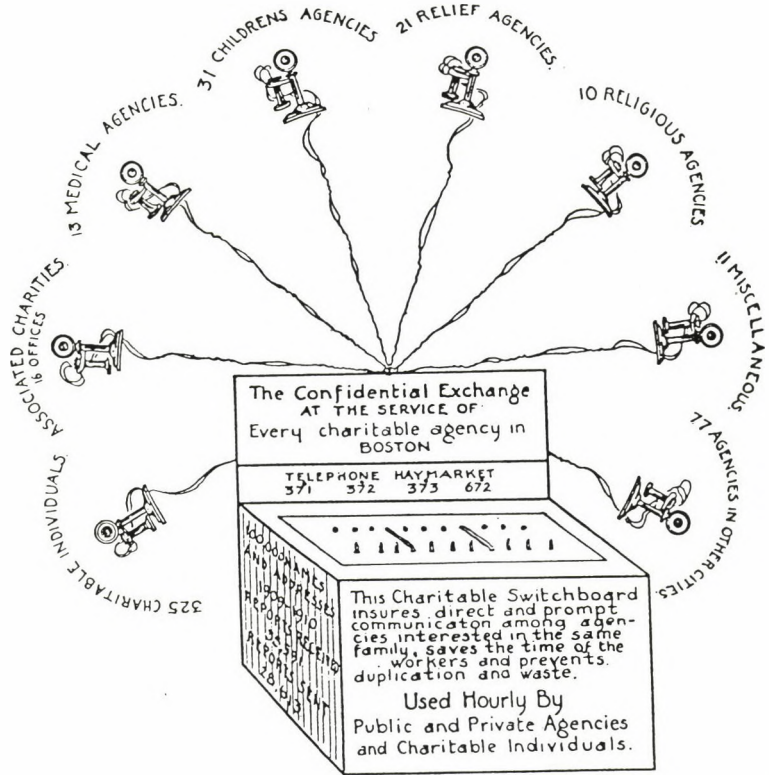 325 CHARITABLE INDIVIDUALS.
ASSOCIATED CHARITIES.
16 OFFICES
13 MEDICAL AGENCIES.
31 CHILDRENS AGENCIES
21 RELIEF AGENCIES.
10 RELIGIOUS AGENCIES
11 MISCELLANEOUS.
77 AGENCIES IN OTHER CITIES.
The Confidential Exchange
AT THE SERVICE OF
Every charitable agency in
BOSTON
TELEPHONE HAYMARKET
371 372 373 672
NAMES
AND ADDRESSES
1909-1910
REPORTS RECEIVED
REPORTS SENT
This Charitable Switchboard
insures direct and prompt
communicaton among agen-
cies interested in the same
family, saves the time of the
workers and prevents
duplication and waste.
Used Hourly By
Public and Private Agencies
and Charitable Individuals.